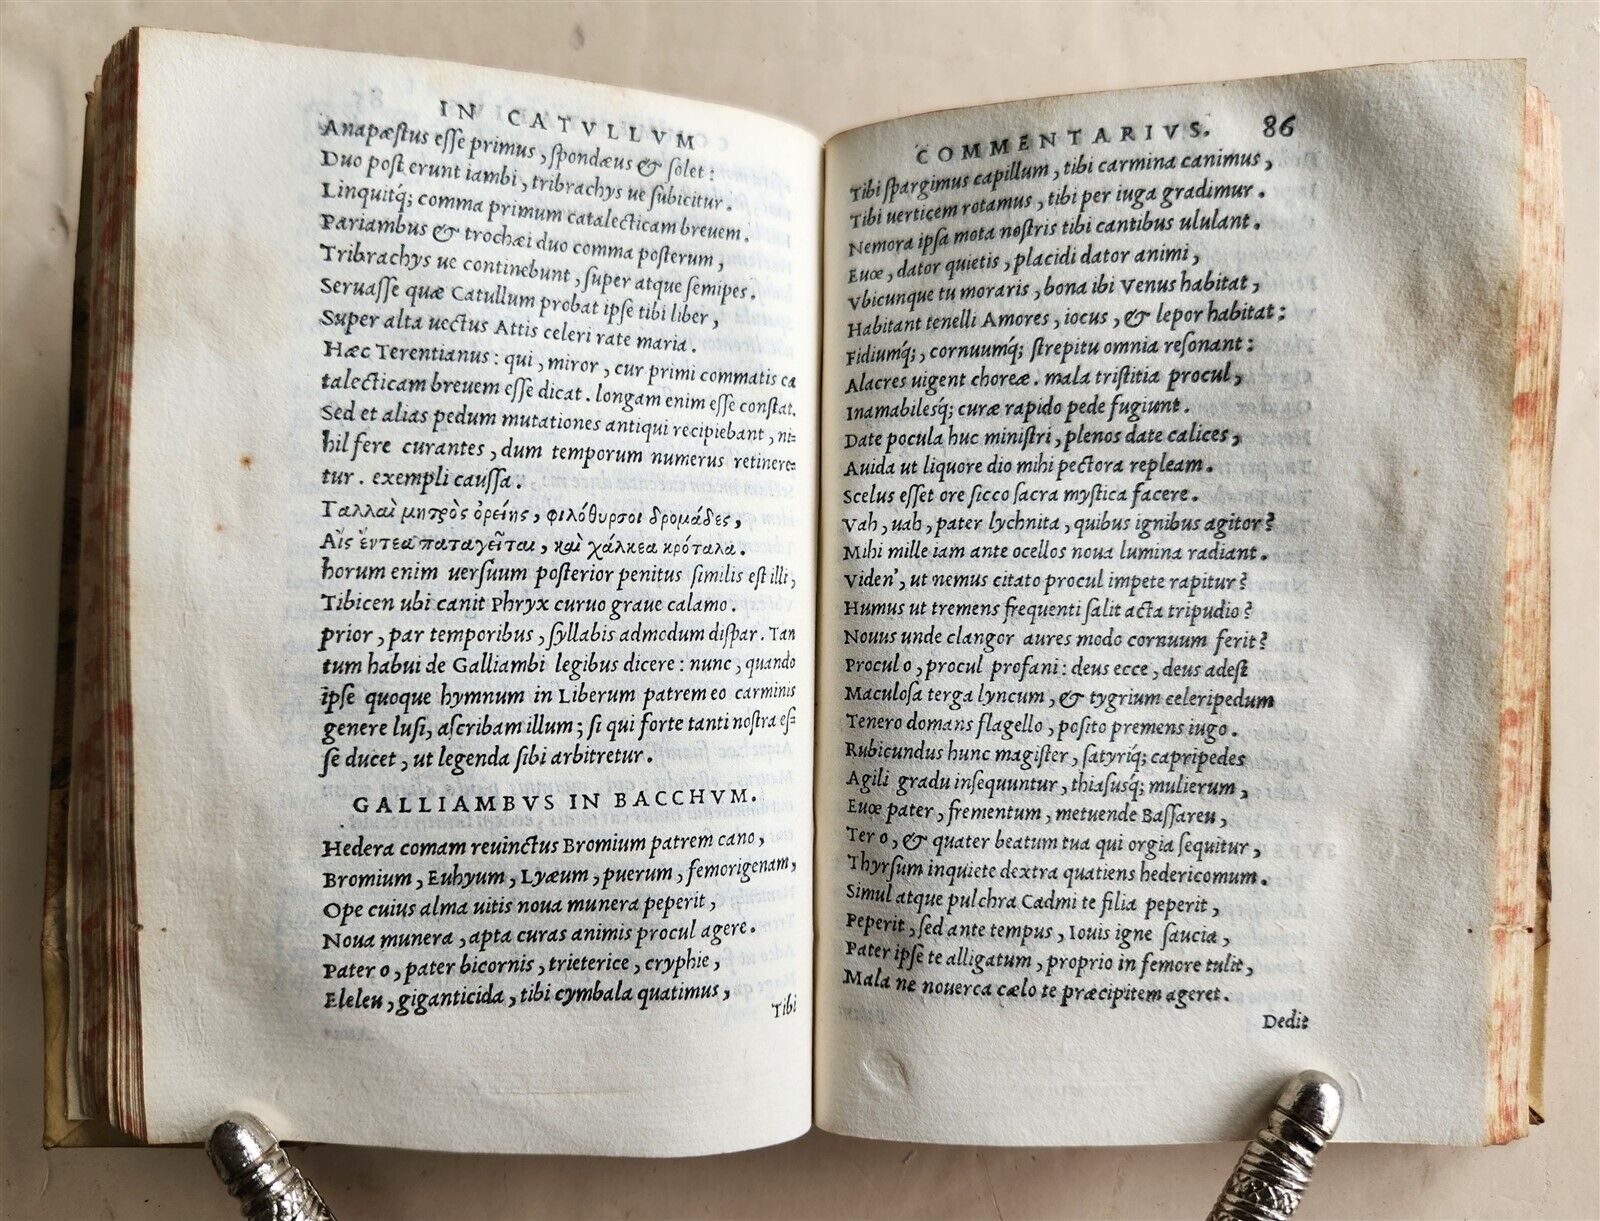 IN CATVLLVM
Anapæstus esse primus, spondæus & solet:
Duo post erunt iambi, tribrachys ue subicitur.
Linquitq́; comma primum catalecticam breuem.
Pariambus & trochæi duo comma posterum,
Tribrachys ue continebunt, super atque semipes.
Seruasse quæ Catullum probat ipse tibi liber,
Super alta uectus Attis celeri rate maria.
Hæc Terentianus: qui, miror, cur primi commatis ca
talecticam breuem esse dicat. longam enim esse constat.
Sed et alias pedum mutationes antiqui recipiebant, ni-
hil fere curantes, dum temporum numerus retinere-
tur. exempli caussa.
Γαλλαὶ μητρὸς ὀρείης, φιλόθυρσοι δρομάδες,
Αἷς ἔντεα παταγεῖται, καὶ χάλκεα κρόταλα.
horum enim uersuum posterior penitus similis est illi,
Tibicen ubi canit Phryx curuo graue calamo.
prior, par temporibus, syllabis admodum dispar. Tan
tum habui de Galliambi legibus dicere: nunc, quando
ipse quoque hymnum in Liberum patrem eo carminis
genere lusi, ascribam illum; si qui forte tanti nostra es-
se ducet, ut legenda sibi arbitretur.
GALLIAMBVS IN BACCHVM.
Hedera comam reuinctus Bromium patrem cano,
Bromium, Euhyum, Lyæum, puerum, femorigenam,
Ope cuius alma uitis noua munera peperit,
Noua munera, apta curas animis procul agere.
Pater o, pater bicornis, trieterice, cryphie,
Eleleu, giganticida, tibi cymbala quatimus,
Tibi
COMMENTARIVS. 86
Tibi spargimus capillum, tibi carmina canimus,
Tibi uerticem rotamus, tibi per iuga gradimur.
Nemora ipsa mota nostris tibi cantibus ululant.
Euœ, dator quietis, placidi dator animi,
Vbicunque tu moraris, bona ibi Venus habitat,
Habitant tenelli Amores, iocus, & lepor habitat:
Fidiumq́;, cornuumq́; strepitu omnia resonant:
Alacres uigent choreæ. mala tristitia procul,
Inamabilesq́; curæ rapido pede fugiunt.
Date pocula huc ministri, plenos date calices,
Auida ut liquore dio mihi pectora repleam.
Scelus esset ore sicco sacra mystica facere.
Vah, uah, pater lychnita, quibus ignibus agitor?
Mihi mille iam ante ocellos noua lumina radiant.
Viden', ut nemus citato procul impete rapitur?
Humus ut tremens frequenti salit acta tripudio?
Nouus unde clangor aures modo cornuum ferit?
Procul o, procul profani: deus ecce, deus adest
Maculosa terga lyncum, & tygrium celeripedum
Tenero domans flagello, posito premens iugo.
Rubicundus hunc magister, satyriq́; capripedes
Agili gradu insequuntur, thiasusq́; mulierum,
Euœ pater, frementum, metuende Bassareu,
Ter o, & quater beatum tua qui orgia sequitur,
Thyrsum inquiete dextra quatiens hedericomum.
Simul atque pulchra Cadmi te filia peperit,
Peperit, sed ante tempus, Iouis igne saucia,
Pater ipse te alligatum, proprio in femore tulit,
Mala ne nouerca cælo te præcipitem ageret.
Dedi-